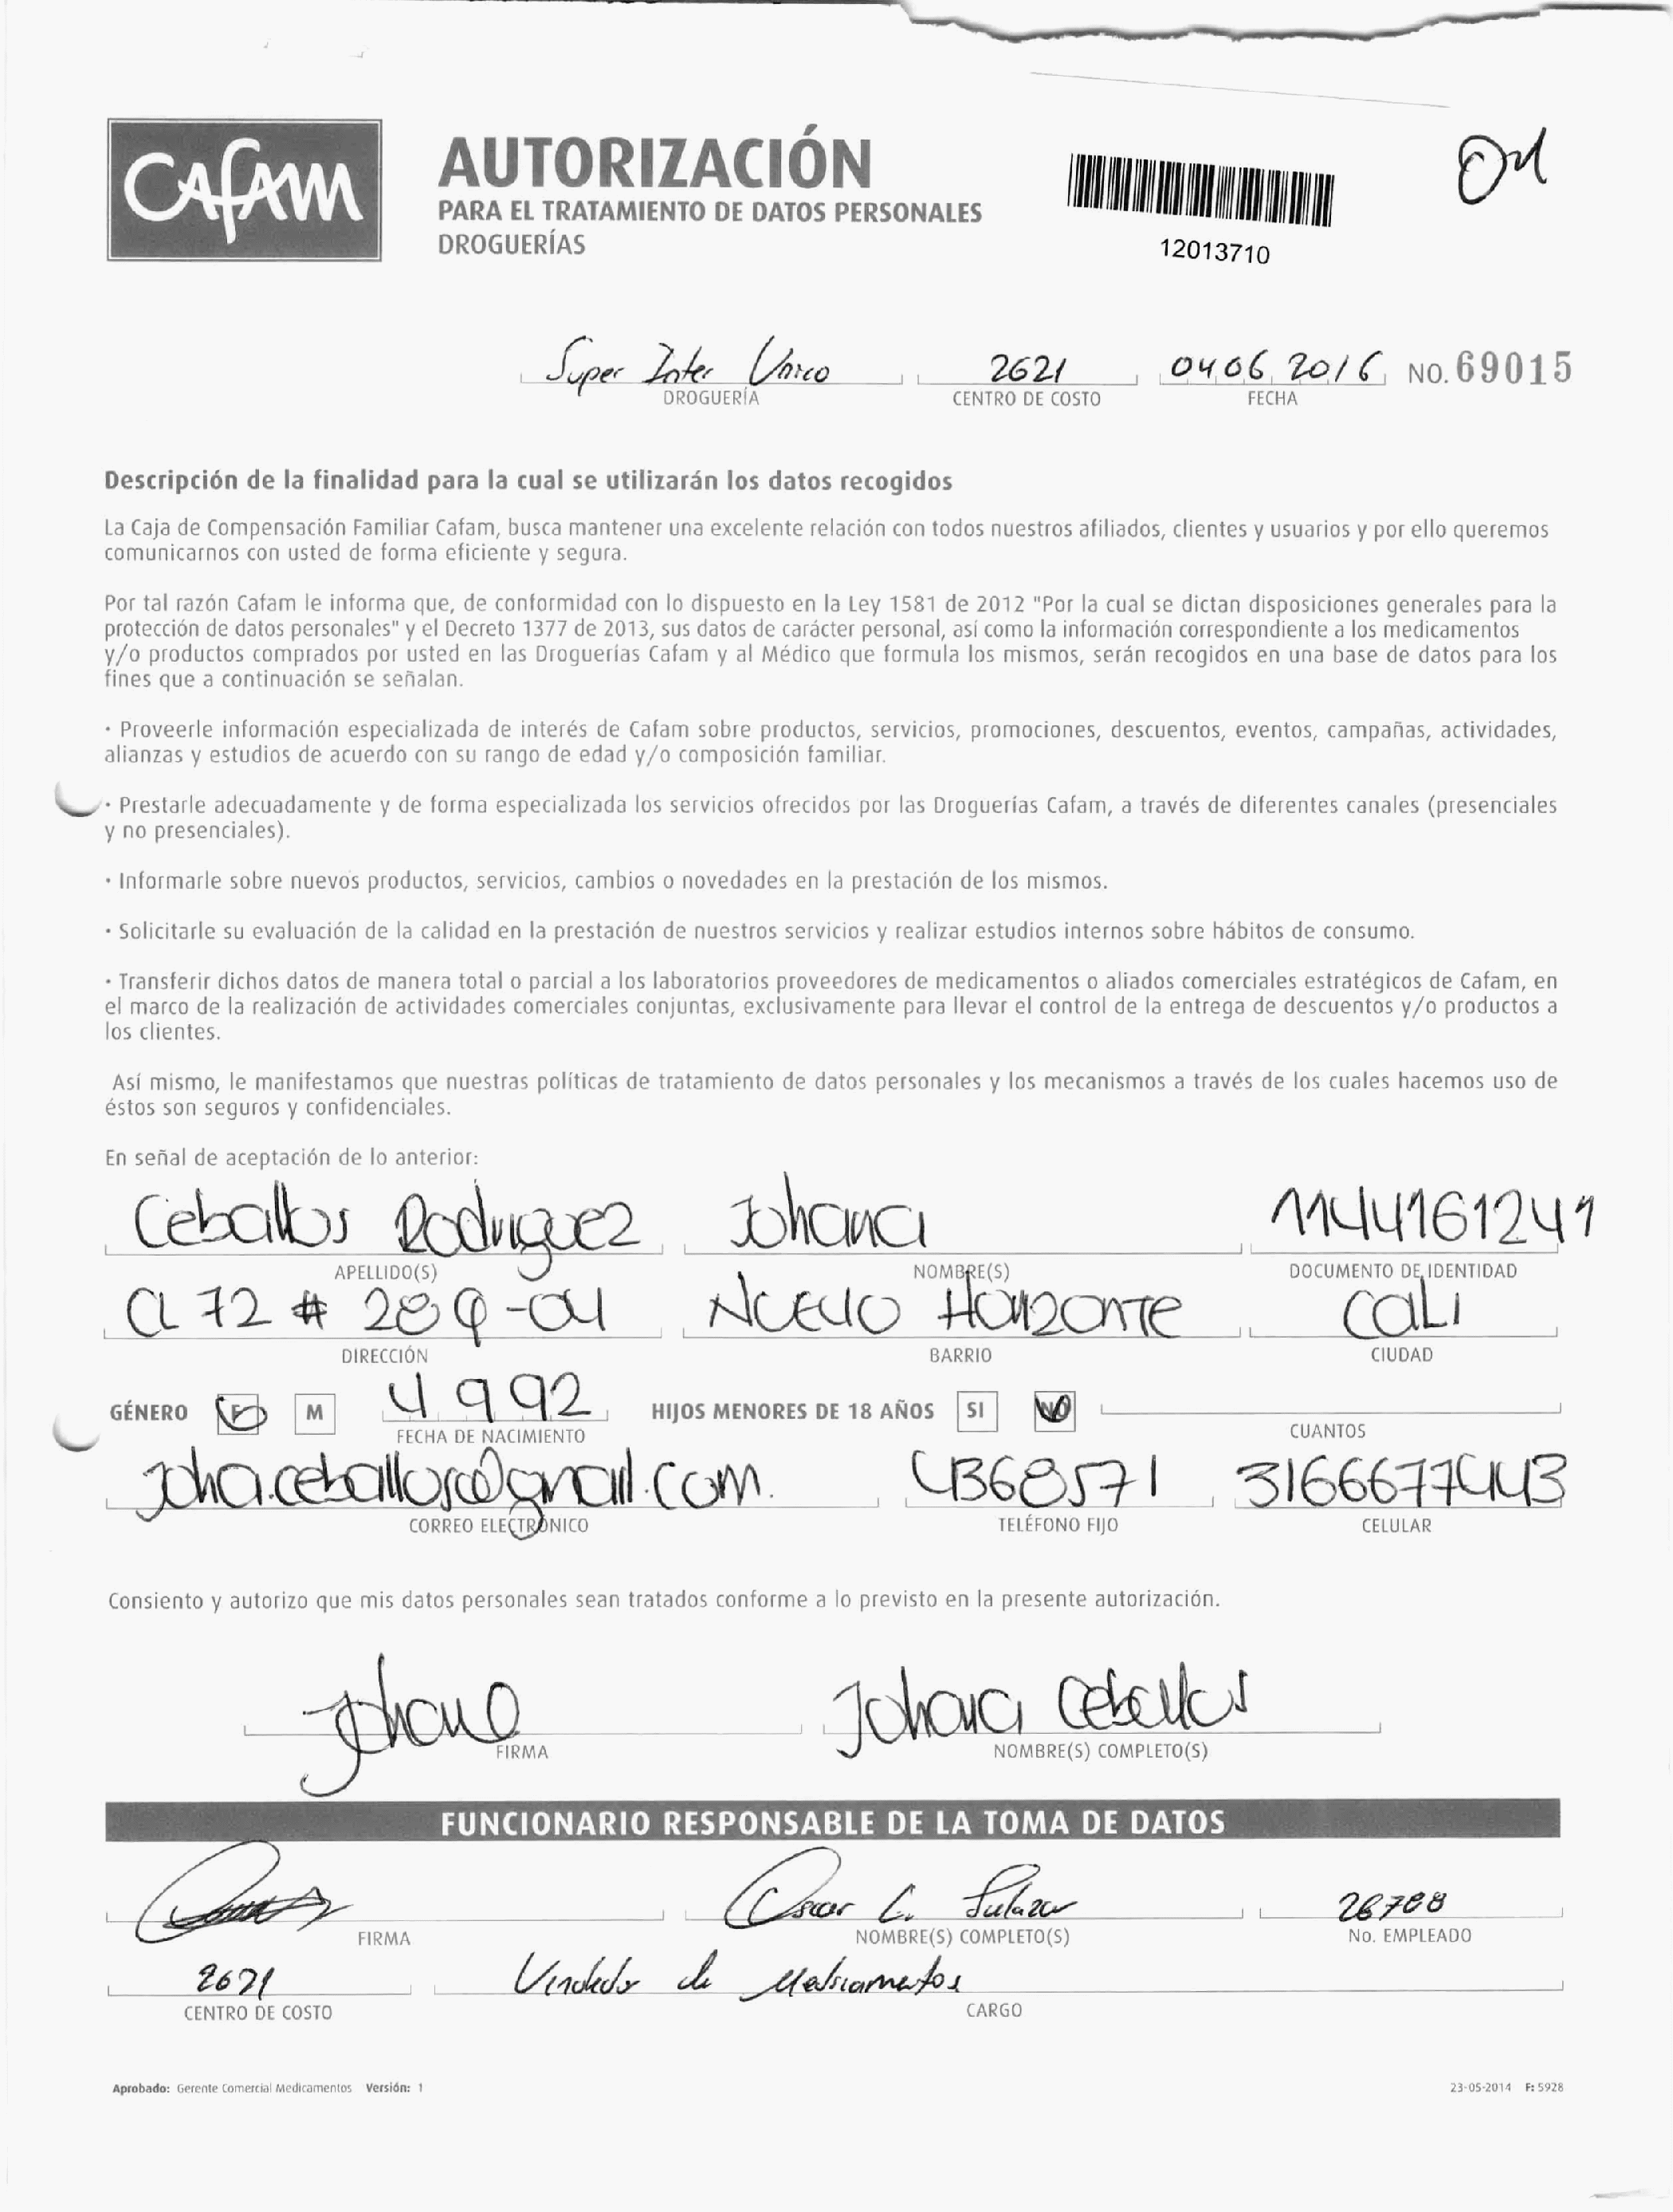 CAFAM
AUTORIZACIÓN
PARA EL TRATAMIENTO DE DATOS PERSONALES
DROGUERÍAS
12013710
04
Super Inter Unico 2621 04 06 2016 NO. 69015
DROGUERÍA CENTRO DE COSTO FECHA
Descripción de la finalidad para la cual se utilizarán los datos recogidos
La Caja de Compensación Familiar Cafam, busca mantener una excelente relación con todos nuestros afiliados, clientes y usuarios y por ello queremos
comunicarnos con usted de forma eficiente y segura.
Por tal razón Cafam le informa que, de conformidad con lo dispuesto en la Ley 1581 de 2012 "Por la cual se dictan disposiciones generales para la
protección de datos personales" y el Decreto 1377 de 2013, sus datos de carácter personal, así como la información correspondiente a los medicamentos
y/o productos comprados por usted en las Droguerías Cafam y al Médico que formula los mismos, serán recogidos en una base de datos para los
fines que a continuación se señalan.
· Proveerle información especializada de interés de Cafam sobre productos, servicios, promociones, descuentos, eventos, campañas, actividades,
alianzas y estudios de acuerdo con su rango de edad y/o composición familiar.
· Prestarle adecuadamente y de forma especializada los servicios ofrecidos por las Droguerías Cafam, a través de diferentes canales (presenciales
y no presenciales).
· Informarle sobre nuevos productos, servicios, cambios o novedades en la prestación de los mismos.
· Solicitarle su evaluación de la calidad en la prestación de nuestros servicios y realizar estudios internos sobre hábitos de consumo.
· Transferir dichos datos de manera total o parcial a los laboratorios proveedores de medicamentos o aliados comerciales estratégicos de Cafam, en
el marco de la realización de actividades comerciales conjuntas, exclusivamente para llevar el control de la entrega de descuentos y/o productos a
los clientes.
Así mismo, le manifestamos que nuestras políticas de tratamiento de datos personales y los mecanismos a través de los cuales hacemos uso de
éstos son seguros y confidenciales.
En señal de aceptación de lo anterior:
Ceballos Rodriguez Johana 1144161241
APELLIDO(S) NOMBRE(S) DOCUMENTO DE IDENTIDAD
CL 72 # 28 -04 Nuevo Horizonte Cali
DIRECCIÓN BARRIO CIUDAD
GÉNERO F M 4 9 92 HIJOS MENORES DE 18 AÑOS SI NO
FECHA DE NACIMIENTO CUANTOS
4368571 3166677443
CORREO ELECTRÓNICO TELÉFONO FIJO CELULAR
Consiento y autorizo que mis datos personales sean tratados conforme a lo previsto en la presente autorización.
Johana Johana Ceballos
FIRMA NOMBRE(S) COMPLETO(S)
FUNCIONARIO RESPONSABLE DE LA TOMA DE DATOS
Oscar L. Salazar 26788
FIRMA NOMBRE(S) COMPLETO(S) No. EMPLEADO
2621 Vendedor de Medicamentos
CENTRO DE COSTO CARGO
Aprobado: Gerente Comercial Medicamentos Versión: 1 23-05-2014 F: 5928